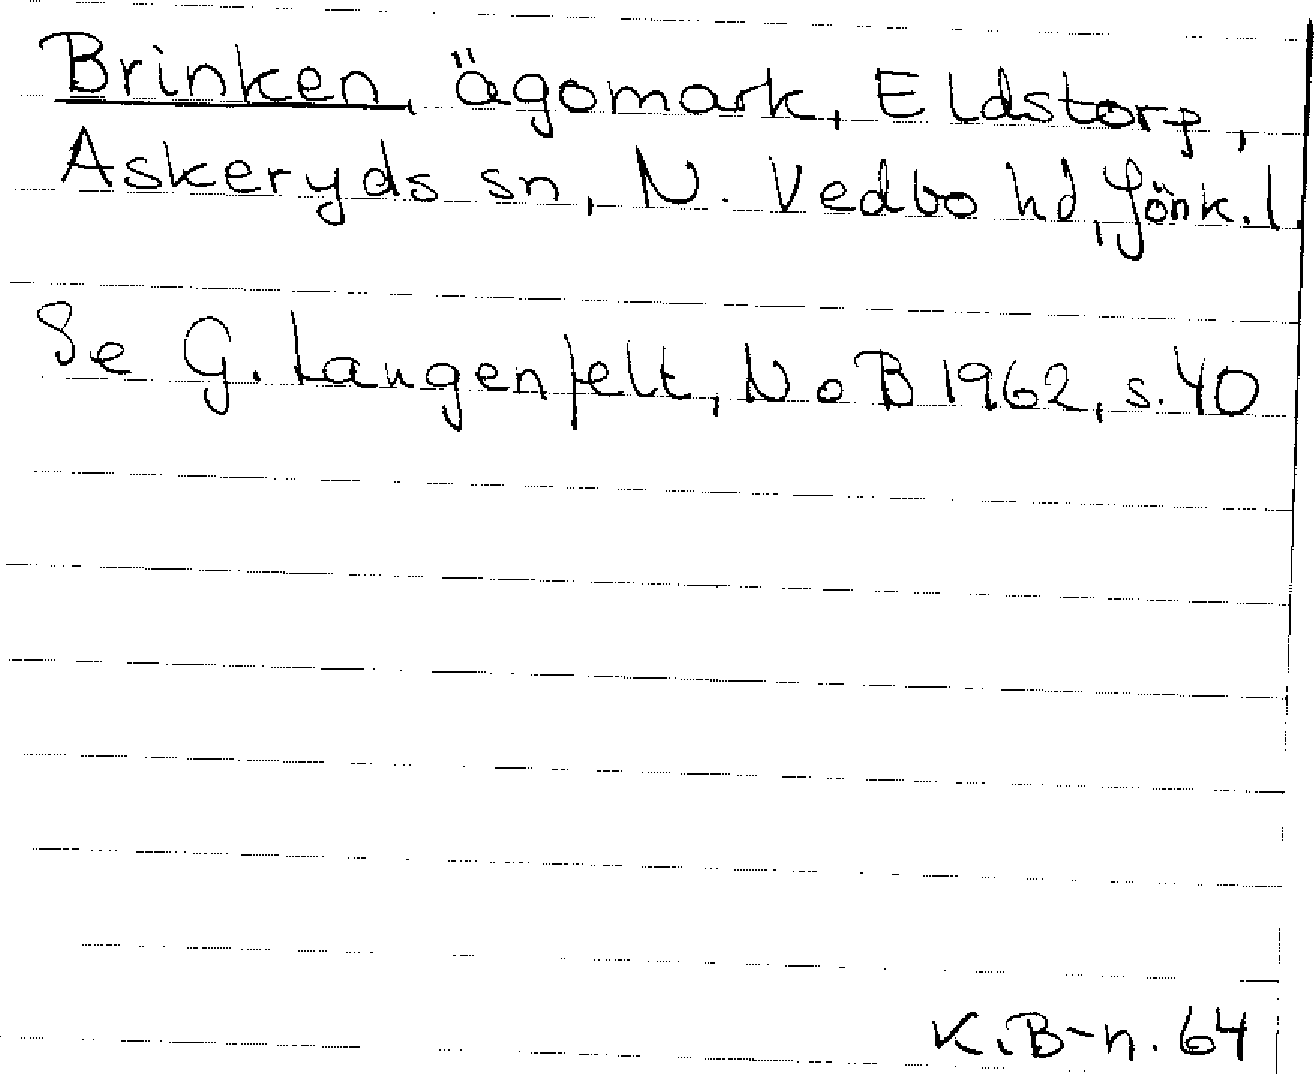 Brinken, ägomark, Eldstorp,
Askeryds sn, N. Vedbo hd, Jönk. l.
Se G. Langenfelt, NoB 1962, s. 40
K. B-n. 64